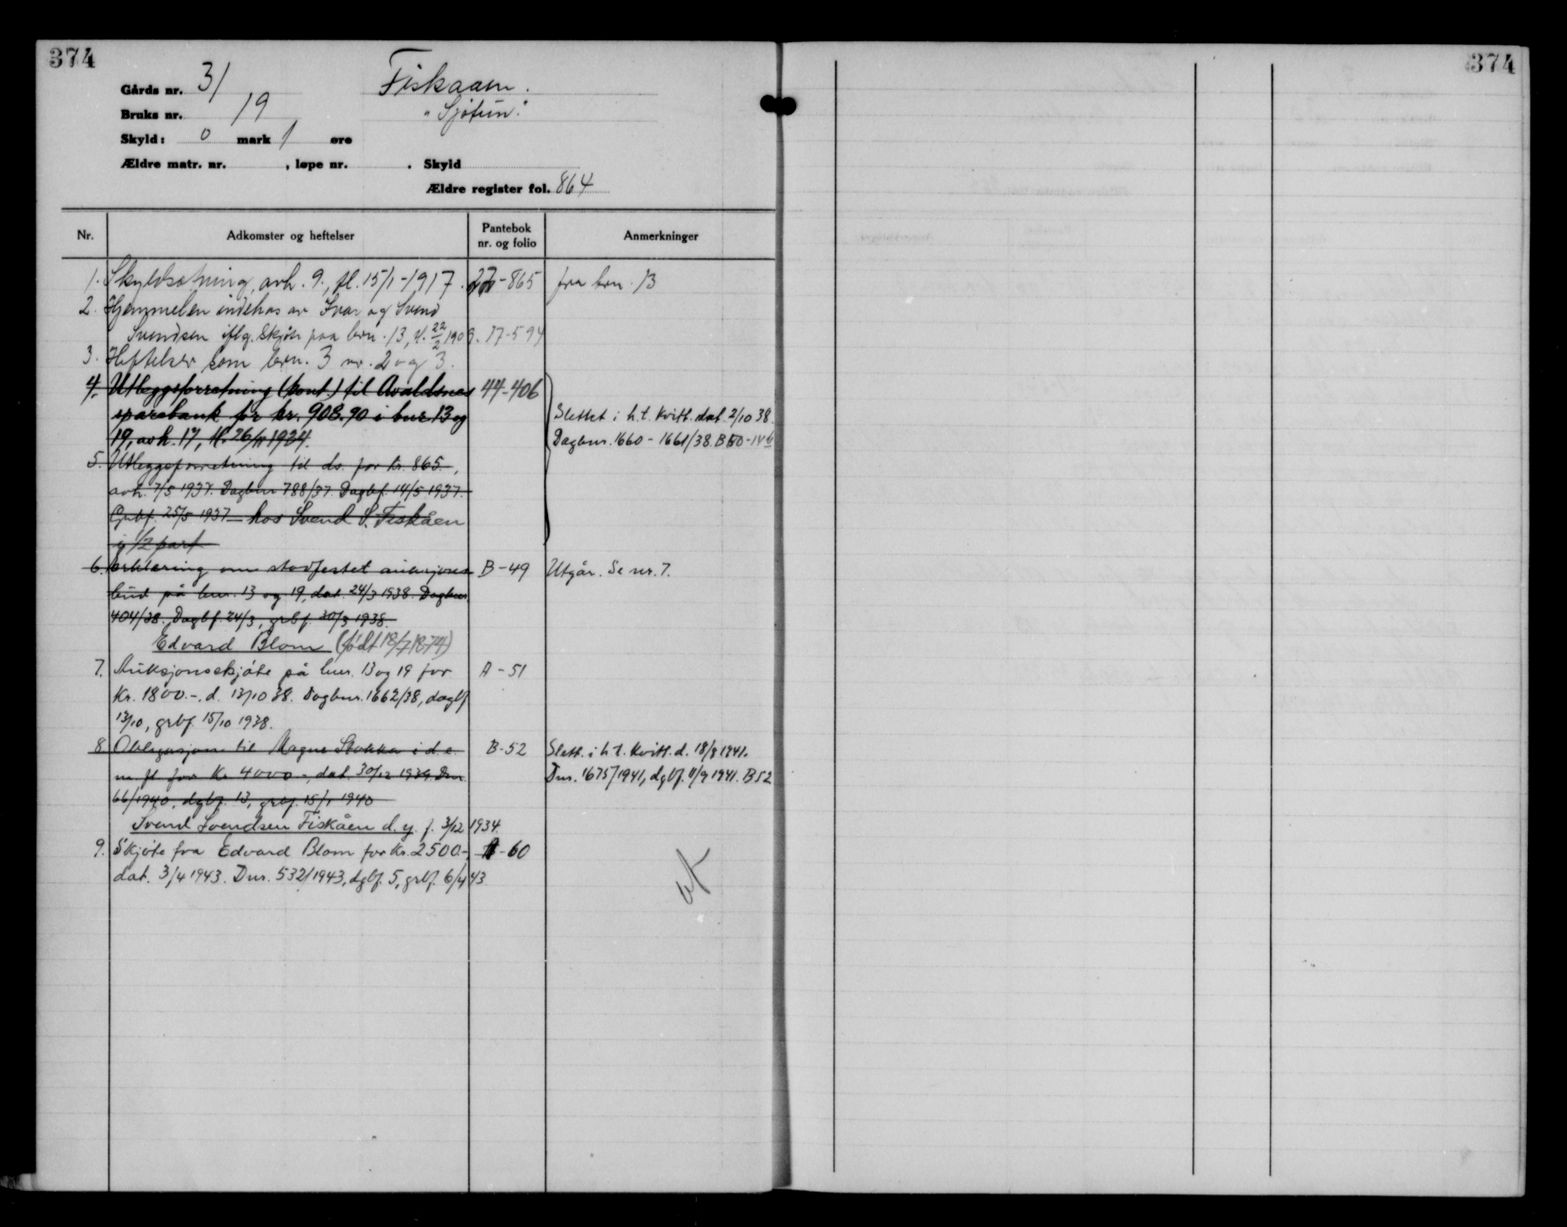 374
374
Gårds nr. 31 Fiskaaen.
Bruks nr. 19 "Sjøtun".
Skyld: 0 mark 1 øre
Ældre matr. nr. , løpe nr. . Skyld
Ældre register fol. 864
Nr. Adkomster og heftelser Pantebok nr. og folio Anmerkninger
1. Skyldsætning, avh. 9., tl. 15/1-1917. 27-865 fra brn. 13
2. Hjemmelen indehas av Ivar og Svend
Svendsen iflg. skjøte paa brn. 13, tl. 22/2 1909. 17-594
3. Heftelser som brn. 3 nr. 2 og 3.
4. Utleggsforretning (kont.) til Avaldsnes 44-406
sparebank for kr. 908.90 i bnr 13 og Slettet i h.t. kvitt. dat. 2/10 38.
19, avh. 17, tl. 26/11 1934. Dagbnr. 1660 - 1661/38. B 50-14
5. Utleggsforretning til ds. for kr. 865.,
avh. 7/5 1937. Dagbnr 788/37. Dagbf. 14/5 1937.
Grbf. 25/5 1937 hos Svend S. Fiskåen
i 1/2 part
6. Erklæring om stadfestet auksjons- B-49 Utgår. Se nr. 7.
bud på bnr. 13 og 19, dat. 24/3 1938. Dagbnr.
404/38, Dagbf. 24/3, grbf. 30/3 1938.
Edvard Blom (født 18/7 1874)
7. Auksjonsskjøte på bnr. 13 og 19 for A-51
kr. 1800.-. d. 13/10 38. Dagbnr. 1662/38, dagbf
13/10, grbf. 15/10 1938.
8. Obligasjon til Magne Stokka i d. e. B-52 Slett. i h.t. kvitt. d. 18/8 1941.
m. fl for kr 4000.-, dat 30/12 1939. Dnr. Dnr. 1675/1941, dgbf. 11/9 1941. B 52
66/1940, dgbf. 13, grbf. 15/1 1940
Svend Svendsen Fiskåen d. y. f. 3/12 1934.
9. Skjøte fra Edvard Blom for kr. 2500.-, A-60
dat. 3/4 1943. Dnr. 532/1943, dgbf. 5, grbf. 6/4 43